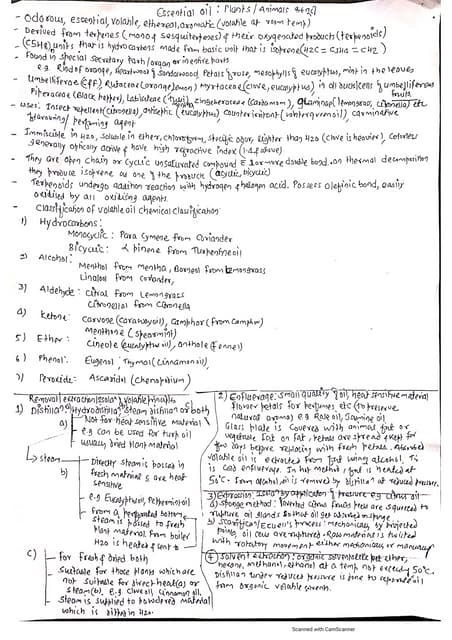 Essential oil : Plants / Animals
- Odorous, essential, volatile, ethereal, aromatic (volatile at room temp)
- Derived from terpenes (mono & sesquiterpenes) & their oxygenated products (terpenoids)
- (C5H8) units that is hydrocarbons made from basic unit that is isoprene (H2C = C5H4 = CH2)
- Found in special secretary parts/organ or in entire parts
e.g. Rind of orange, heartwood of sandalwood, Petals of rose, mesophylls of eucalyptus, mint in the leaves
- Umbelliferae, Rutaceae (orange, lemon) Myrtaceae (clove, eucalyptus) in all ducts/cells of umbelliferous fruits
Piperaceae (Black pepper), Labiatae, Zingiberaceae (Cardamom), Graminae (lemongrass, citronella) etc
- Uses: Insect repellent (citronella), antiseptic (eucalyptus) counterirritant (wintergreen oil), carminative
flavouring / perfuming agent
- Immiscible in H2O, soluble in ether, chloroform, specific odour, lighter than H2O (clove is heavier), colorless
generally optically active & have high refractive index
- They are open chain or cyclic unsaturated compound & 1 or more double bond. on thermal decomposition
they produce isoprene as one of the product (acyclic, bicyclic)
- Terpenoids undergo addition reaction with hydrogen & halogen acid. Posses olefinic bond, easily
oxidized by all oxidizing agents.
- Classification of volatile oil chemical classification
1) Hydrocarbons :
Monocyclic : Para Cymene from Coriander
Bicyclic : α pinene from Turpentine oil
2) Alcohol :
Menthol from mentha, Borneol from lemongrass
Linalool from coriander,
3) Aldehyde : Citral from Lemongrass
Citronellal from Citronella
4) Ketone : Carvone (caraway oil), Camphor (from Camphor)
Menthone (spearmint)
5) Ether : Cineole (eucalyptus oil), Anthole (Fennel)
6) Phenol : Eugenol, Thymol (Cinnamon oil),
7) Peroxide : Ascaridol (Chenopodium)
Removal extraction of volatile principles
1) Distillation & Hydrodistillation, steam distillation or both
a) Not for heat sensitive material
e.g can be used for turp oil
usually dried plant material
Steam
b) Directly steam is passed in
fresh material & are heat
sensitive
e.g Eucalyptus oil, Peppermint oil
From a perforated bottom,
steam is passed to fresh
plant material from boiler
H2O is heated & sent to
c) - for fresh & dried both
- Suitable for those plants which are
not suitable for direct heat (a) or
steam (b). e.g clove oil, cinnamon oil.
- Steam is supplied to powdered material
which is dist in H2O.
2) Enfleurage : small quantity of oil, heat sensitive material
flower petals for perfumes etc (to preserve
natural aroma) e.g Rose oil, Jasmine oil
Glass plate is covered with animal fat or
vegetable fat on fat, petals are spread & kept for
few days before replacing with fresh petals. Absorbed
volatile oil is extracted from fat using alcohol. This
is cold enfleurage. In hot method, fat is heated at
50°C. From alcohol, oil is removed by distillation at reduced pressure.
3) Extraction by application of pressure e.g Citrus oil
a) Sponge method : Inverted citrus fruits peel are squeezed to
rupture oil glands so that oil get absorbed in sponge
b) Scarification / Ecuelle process : Mechanically by projected
pins, oil cells are ruptured. Raw material is twisted
with rotatory movement either mechanically or manually
4) Solvent extraction : organic solvent like pet ether,
hexane, methanol, ethanol at a temp not exceeding 50°C.
Distillation under reduced pressure is done to separate oil
from organic volatile solvent.
Scanned with CamScanner